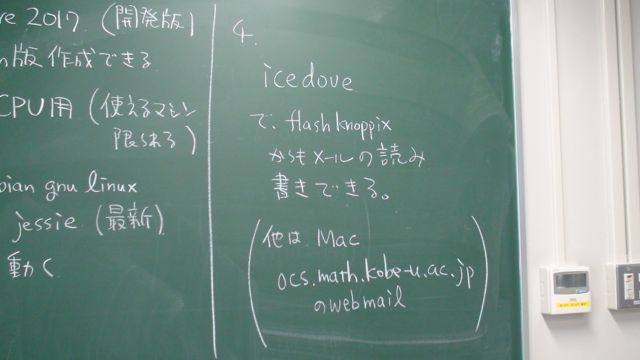 re 2017 (開発版)
n版作成できる
CPU用 (使えるマシン
限られる)
bian gnu linux
jessie (最新)
動く
4.
icedove
で、flashknoppix
からもメールの読み
書きできる。
(他は Mac
ocs.math.kobe-u.ac.jp
のwebmail)